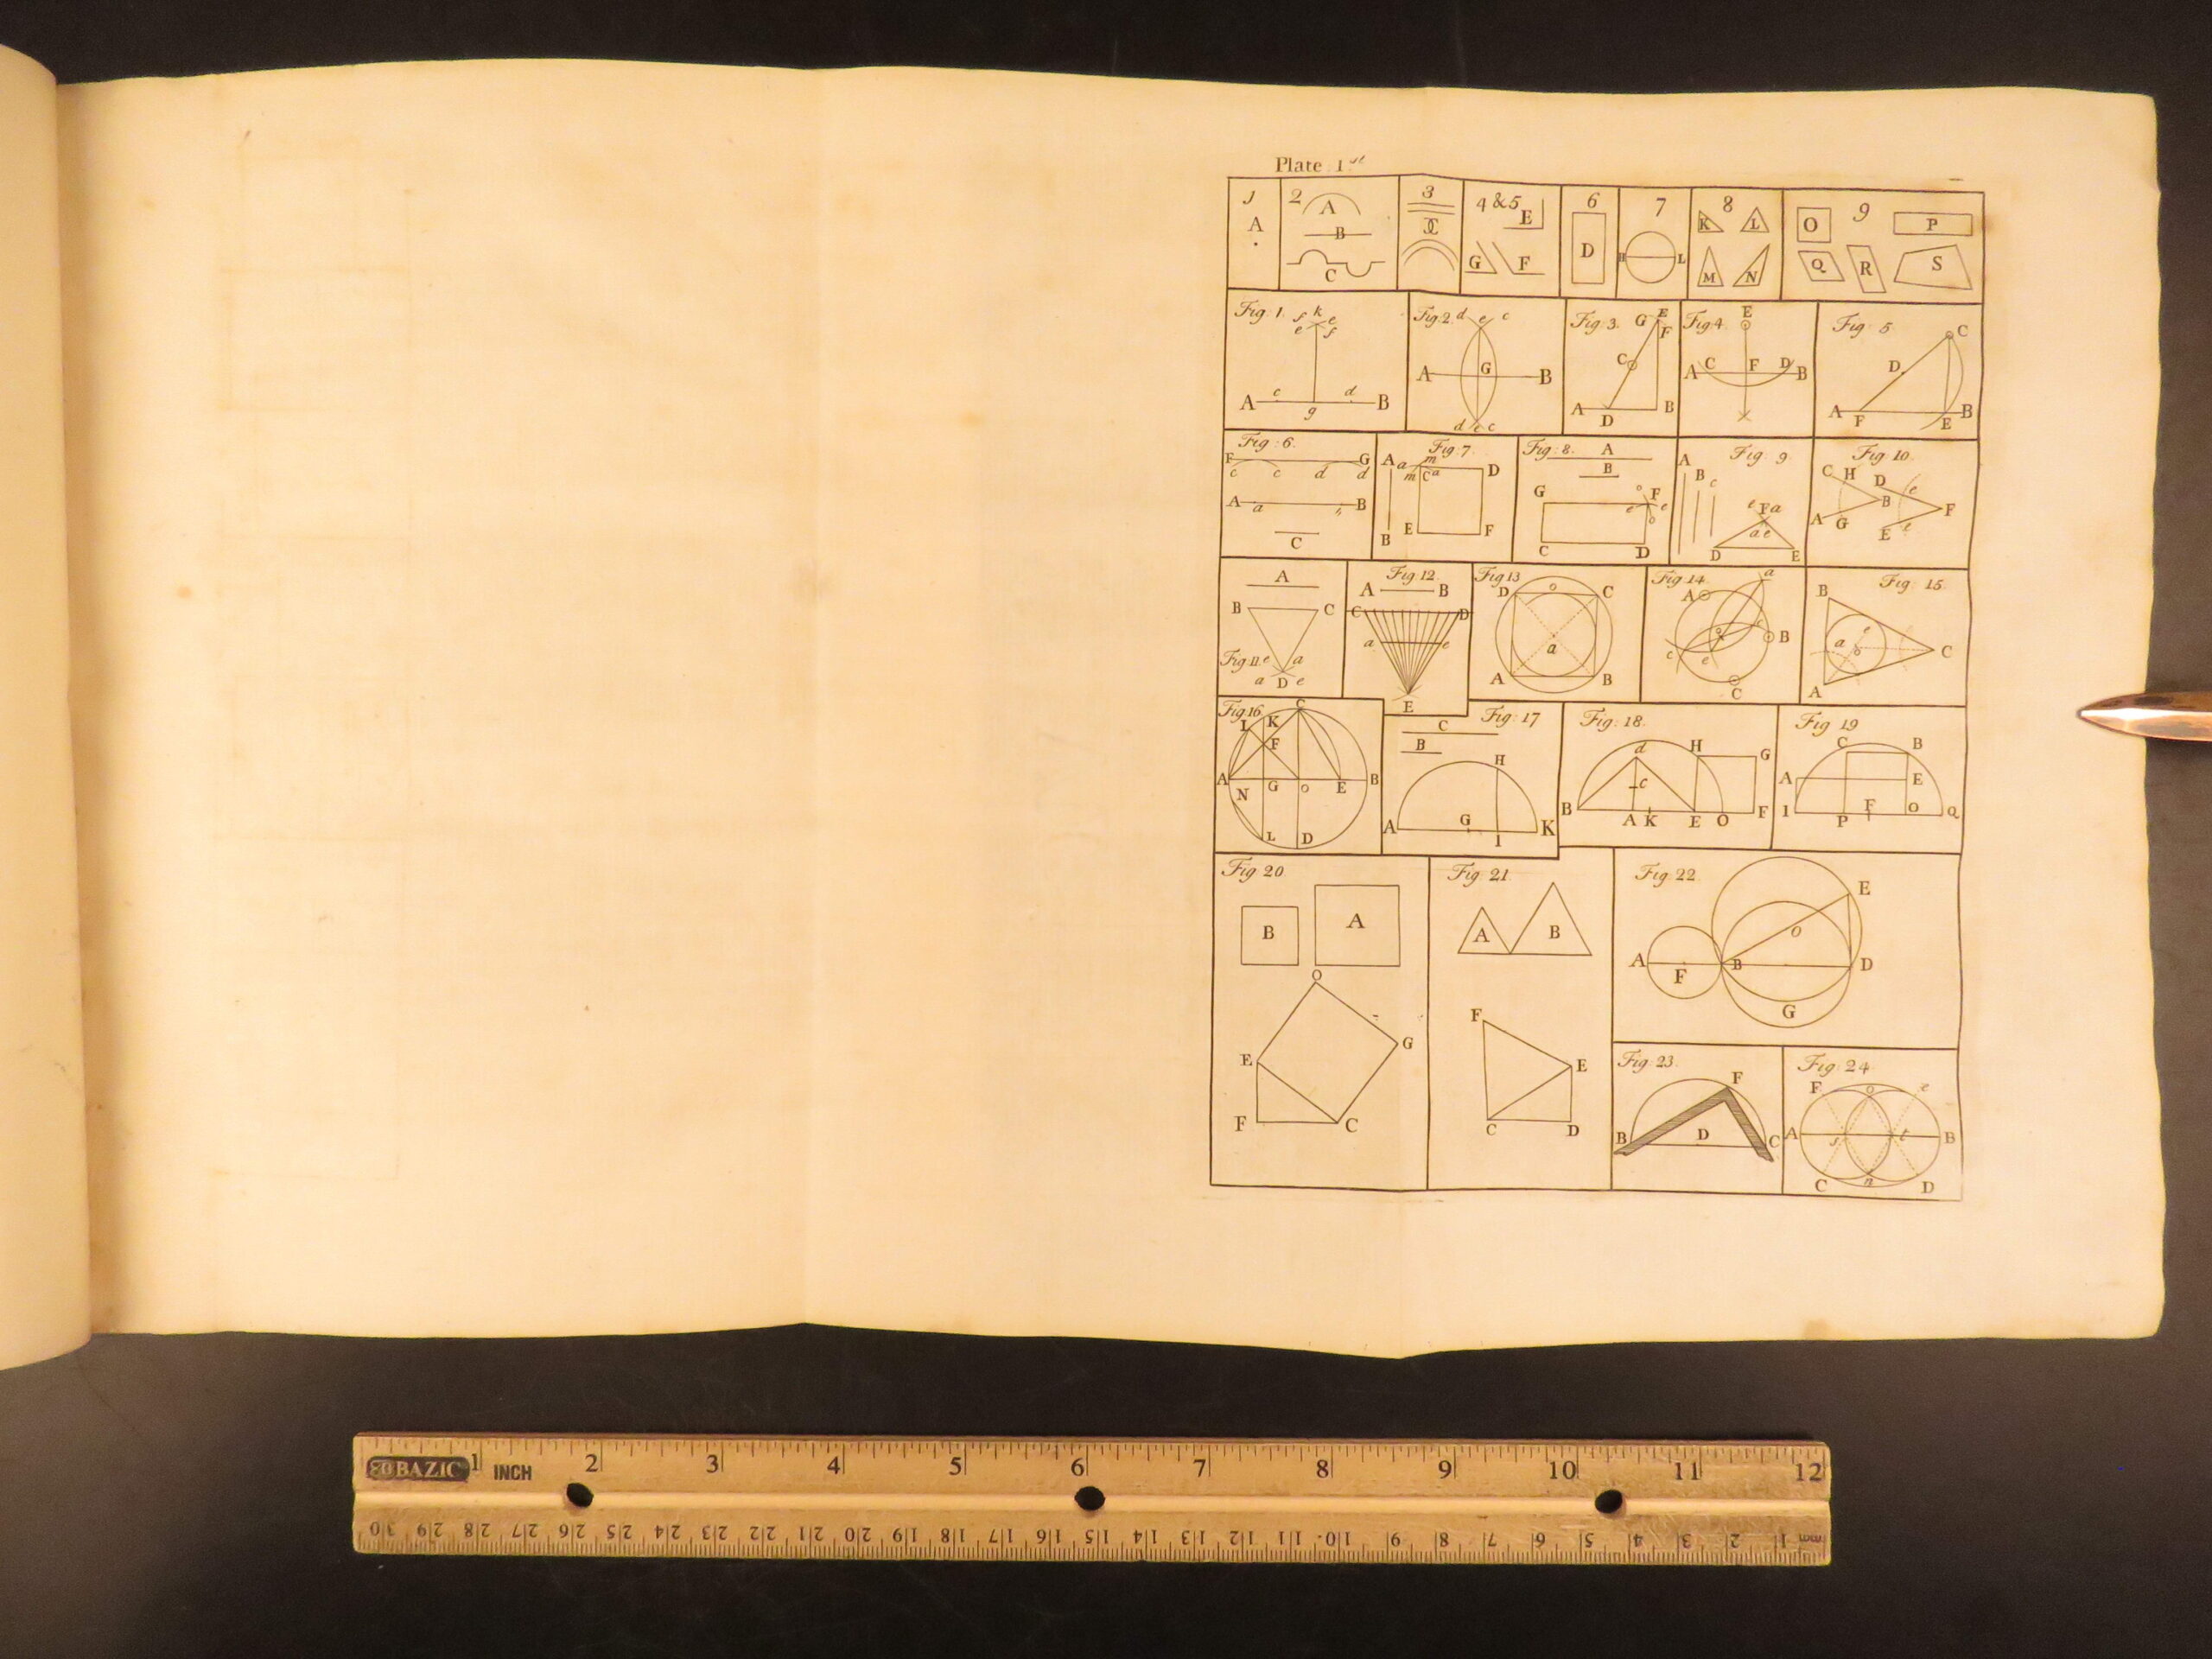 Plate 1st
1 2 3 4 &5 6 7 8 9
A A B C E G F D H L K L M N O P Q R S
Fig. 1. k e f e f A c g d B
Fig. 2. d e c A G B d e c
Fig. 3. G E F C A D B
Fig 4. E A C F D B
Fig: 5 C D A F E B
Fig: 6. F G c c d d A a B C
Fig: 7. A a m m C a D B E F
Fig: 8. A B G o F e e o C D
Fig: 9 A B c e F a a e D E
Fig 10. C H D e B F A G E e
A B C Fig 11. e a a D e
Fig 12. A B C D a e E
Fig 13 D o C a A B
Fig 14. a A B c e C
Fig: 15. B a e C A
Fig 16. C L K F A G o E B N L D
Fig: 17 C B H A G I K
Fig: 18. d H G C B A K E O F
Fig 19 C B A E I P F O Q
Fig 20 B A O E G F C
Fig 21 A B F E C D
Fig 22 E O A F B D G
Fig 23. F B D C
Fig: 24 F o e A s t B C n D
BAZIC
1 INCH 2 3 4 5 6 7 8 9 10 11 12
30 29 28 27 26 25 24 23 22 21 20 19 18 17 16 15 14 13 12 11 10 9 8 7 6 5 4 3 2 1 mm